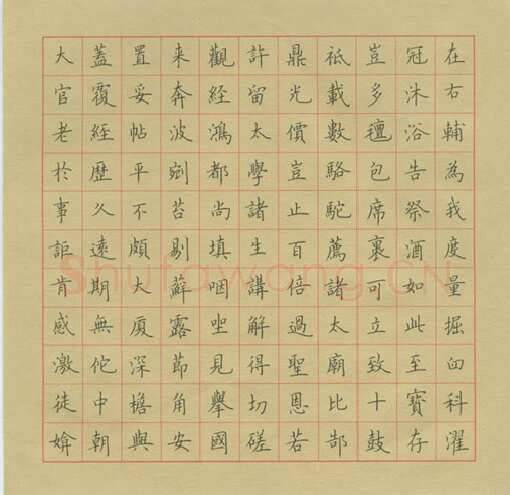 在右輔為我度量掘臼科濯
冠沐浴告祭酒如此至寶存
豈多氈包席裹可立致十鼓
祇載數駱駝薦諸太廟比郜
鼎光價豈止百倍過聖恩若
許留太學諸生講解得切磋
觀經鴻都尚填咽坐見舉國
来奔波剜苔剔蘚露節角安
置妥帖平不頗大廈深檐與
蓋覆經歷久遠期無佗中朝
大官老於事詎肯感激徒媕
Shufawang.CN